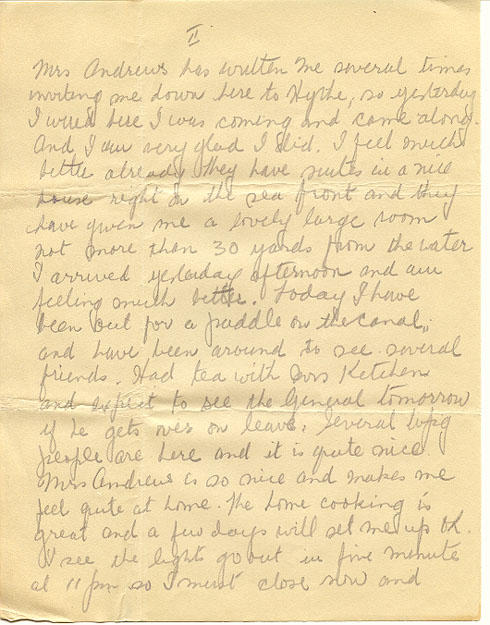 II
Mrs Andrews has written me several times
inviting me down here to Hythe, so yesterday
I wired here I was coming and came along.
And I am very glad I did. I feel much
better already they have suites in a nice
house right on the sea front and they
have given me a lovely large room
not more than 30 yards from the water
I arrived yesterday afternoon and am
feeling much better. Today I have
been out for a paddle on the canal,
and have been around to see several
friends. Had tea with Mrs Ketchen
and expect to see the General tomorrow
if he gets over on leave. Several Wpg
people are here and it is quite nice.
Mrs Andrews is so nice and makes me
feel quite at home. The home cooking is
great and a few days will set me up OK.
I see the lights go out in five minute
at 11 pm so I must close now and